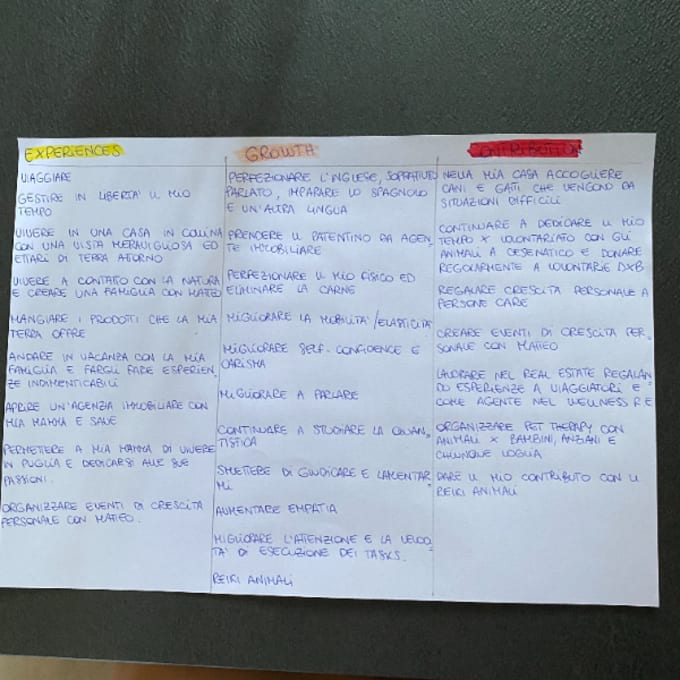 EXPERIENCES
VIAGGIARE
GESTIRE IN LIBERTA' IL MIO
TEMPO
VIVERE IN UNA CASA IN COLLINA
CON UNA VISTA MERAVIGLIOSA ED
ETTARI DI TERRA ATTORNO
VIVERE A CONTATTO CON LA NATURA
E CREARE UNA FAMIGLIA CON MATTEO
MANGIARE I PRODOTTI CHE LA MIA
TERRA OFFRE
ANDARE IN VACANZA CON LA MIA
FAMIGLIA E FARGLI FARE ESPERIEN-
ZE INDIMENTICABILI
APRIRE UN'AGENZIA IMMOBILIARE CON
MIA MAMMA E
PERMETTERE A MIA MAMMA DI VIVERE
IN PUGLIA E DEDICARSI ALLE SUE
PASSIONI.
ORGANIZZARE EVENTI DI CRESCITA
PERSONALE CON MATTEO.
GROWTH
PERFEZIONARE L'INGLESE, SOPRATTUTTO
PARLATO, IMPARARE LO SPAGNOLO
E UN'ALTRA LINGUA
PRENDERE IL PATENTINO DA AGEN-
TE IMMOBILIARE
PERFEZIONARE IL MIO FISICO ED
ELIMINARE LA CARNE
MIGLIORARE LA MOBILITA'/ELASTICITA'
MIGLIORARE SELF-CONFIDENCE E
CARISMA
MIGLIORARE A PARLARE
CONTINUARE A STUDIARE LA QUAN-
TISTICA
SMETTERE DI GIUDICARE E LAMENTAR-
MI
AUMENTARE EMPATIA
MIGLIORARE L'ATTENZIONE E LA VELOCI-
TA' DI ESECUZIONE DEI TASKS.
REIKI ANIMALI
CONTRIBUTION
NELLA MIA CASA ACCOGLIERE
CANI E GATTI CHE VENGONO DA
SITUAZIONI DIFFICILI
CONTINUARE A DEDICARE IL MIO
TEMPO X VOLONTARIATO CON GLI
ANIMALI A CESENATICO E DONARE
REGOLARMENTE A VOLONTARIE DXB
REGALARE CRESCITA PERSONALE A
PERSONE CARE
CREARE EVENTI DI CRESCITA PER-
SONALE CON MATTEO
LAVORARE NEL REAL ESTATE REGALAN-
DO ESPERIENZE A VIAGGIATORI E
COME AGENTE NEL WELLNESS R E
ORGANIZZARE PET THERAPY CON
ANIMALI X BAMBINI, ANZIANI E
CHIUNQUE VOGLIA
DARE IL MIO CONTRIBUTO CON IL
REIKI ANIMALI